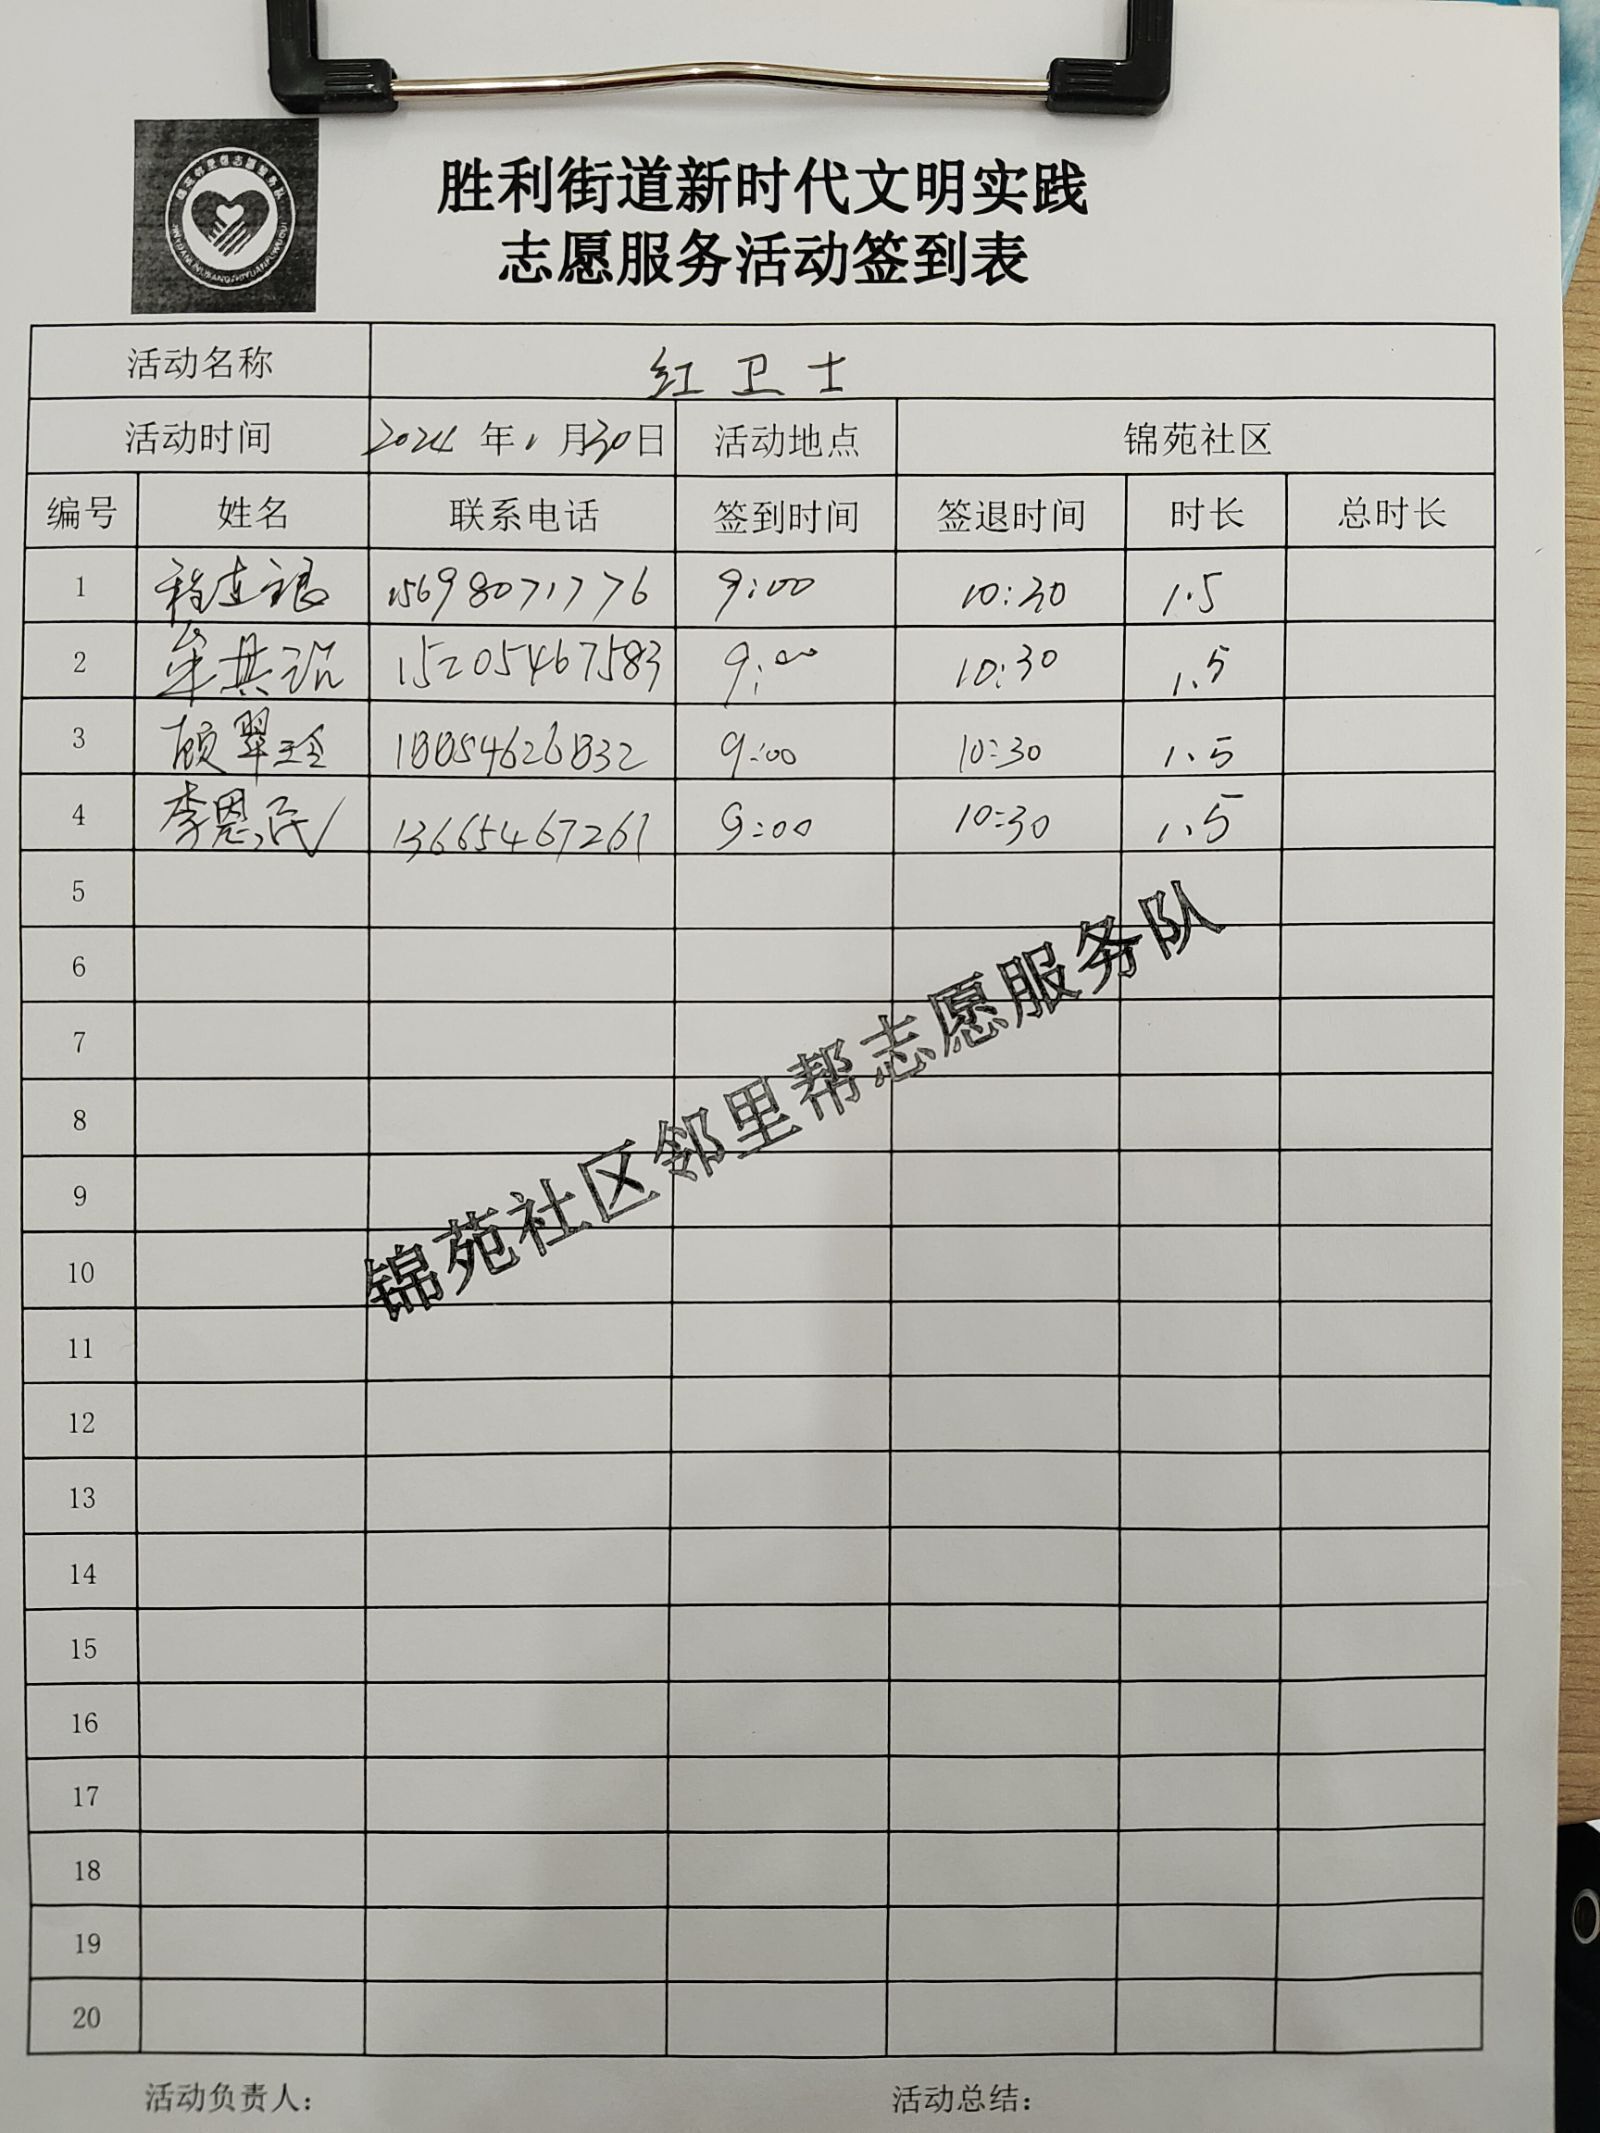 胜利街道新时代文明实践
志愿服务活动签到表
活动名称 红卫士
活动时间 2024年1月30日 活动地点 锦苑社区
编号 姓名 联系电话 签到时间 签退时间 时长 总时长
1 15698071776 9:00 10:30 1.5
2 牟其 15205467583 9:00 10:30 1.5
3 顾翠玲 18854626832 9:00 10:30 1.5
4 李恩民 13665467261 9:00 10:30 1.5
5
6
7
8
9
10
11
12
13
14
15
16
17
18
19
20
锦苑社区邻里帮志愿服务队
活动负责人： 活动总结：